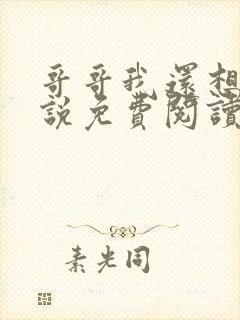 哥哥我還想
説免費閱讀
素光同